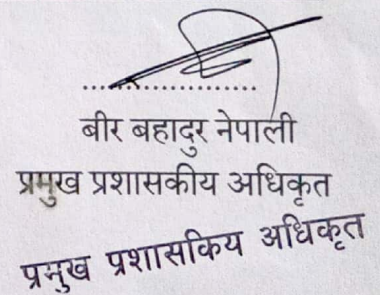 ..............................
बीर बहादुर नेपाली
प्रमुख प्रशासकीय अधिकृत
प्रमुख प्रशासकिय अधिकृत